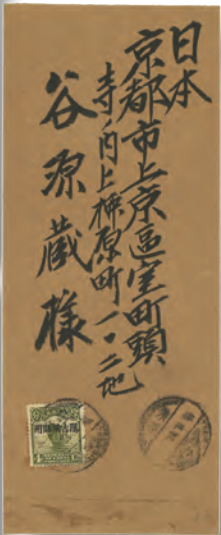 日本
京都市上京區室町頭
寺ノ内上柳原町一〇二地
谷源蔵様